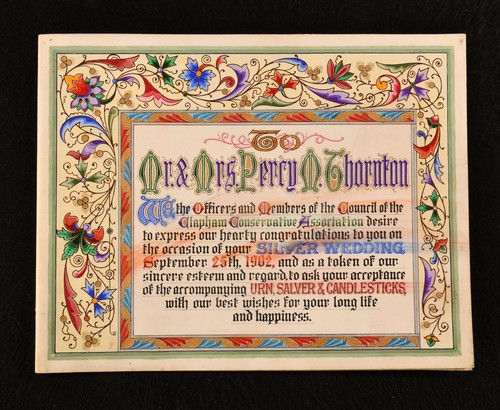 To
Mr. & Mrs. Percy M. Thornton
We the Officers and Members of the Council of the
Clapham Conservative Association desire
to express our hearty congratulations to you on
the occasion of your SILVER WEDDING,
September 25th, 1902, and as a token of our
sincere esteem and regard, to ask your acceptance
of the accompanying URN, SALVER & CANDLESTICKS,
with our best wishes for your long life
and happiness.